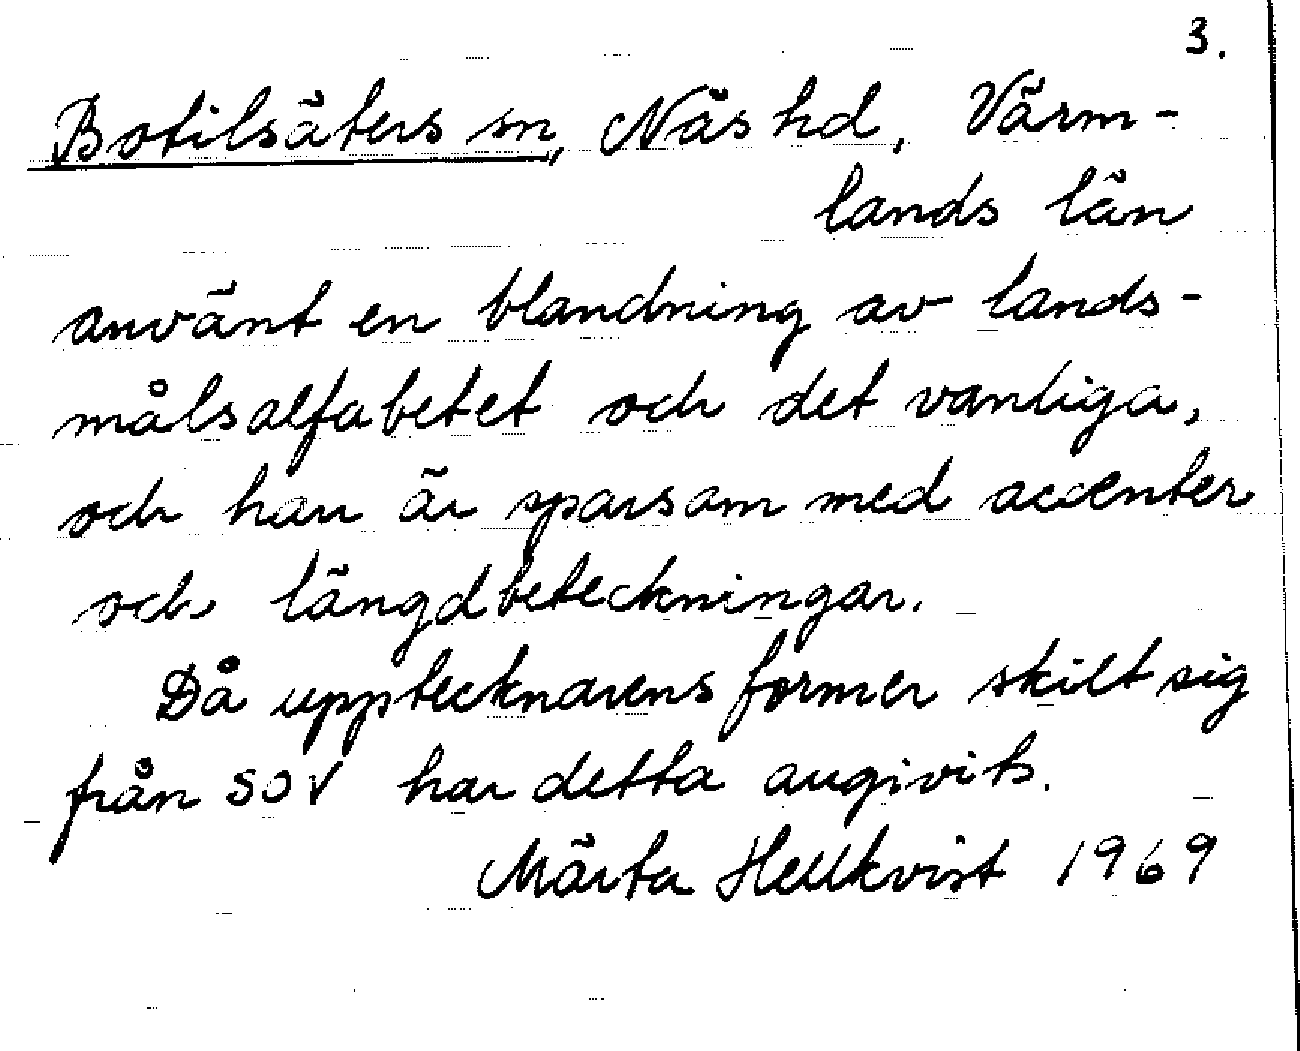 3.
Botilsäters sn, Näs hd, Värm-
lands län
använt en blandning av lands-
målsalfabetet och det vanliga,
och han är sparsam med accenter
och längdbeteckningar.
Då upptecknarens former skilt sig
från SOV har detta angivits.
Märta Hellkvist 1969